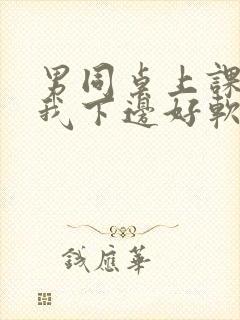 男同桌上課
我下邊好軟
錢應華